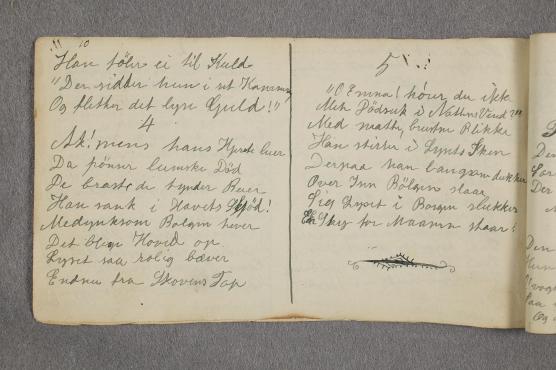 10
Han föler ei til Kuld
"Der sidder hun i sit Kammer
Og fletter det lyse Guld!"
4
Ak! mens hans Hjerte luer
Da lumske Död
De braste de Buer
Han sank i Havets Skjöd!
Medynksom Bølgen hæver
Det blege Hoved op
Lyset saa rolig bæver
Endnu fra Skovens Top
5
"O Emma! hörer du ikke
Mit Dödssuk i Nattens Vind?"
Med matte, brustne Blikke
Han stirrer i Lysets Skin
Derpaa han langsom dukker
Over him Bölgen slaar
Sig Lyset i Borgen slukker
En Sky for Maanen staar!